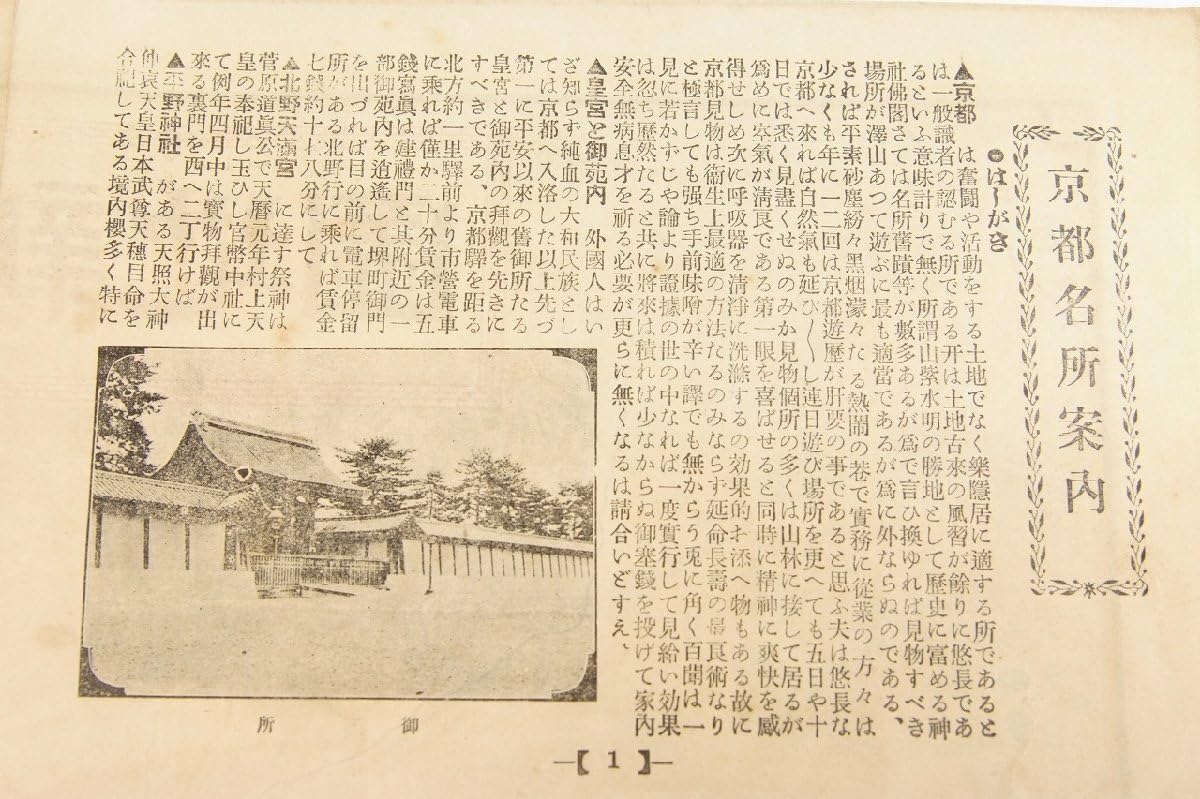 京都名所案内
●はしがき
▲京都 は奮鬪や活動をする土地でなく樂隱居に適する所であると
は一般識者の認むる所である开は土地古來の風習が餘りに悠長であ
るといふ意味計りで無く所謂山紫水明の勝地として歷史に富める神
社佛閣さては名所舊蹟等が數多あるが爲で言ひ換ゆれば見物すべき
場所が澤山あつて遊ぶに最も適當であるが爲に外ならぬのである、
されば平素砂塵紛々黑烟濛々たる熱鬧の巷で實務に從業の方々は
少なくも年に一二回は京都遊歷が肝要の事であると思ふ夫は悠長な
京都へ來れば自然氣も延び〳〵し連日遊び場所を更へても五日や十
日では悉く見盡くせぬのみか見物個所の多くは山林に接して居るが
爲めに空氣が淸良である第一眼を喜ばせると同時に精神に爽快を感
得せしめ次に呼吸器を淸淨に洗滌するの効果的お添へ物もある故に
京都見物は衞生上最適の方法たるのみならず延命長壽の最良術なり
と極言しても强ち手前味噌が辛い譯でも無からう兎に角く百聞は一
見に若かずじや論より證據の世の中なれば一度實行して見給い効果
は忽ち歷然たると共に將來は積れば少なからぬ御塞錢を投げて家內
安全無病息才を祈る必要が更らに無くなるは請合いどすえ、
▲皇宮と御苑內 外國人はい
ざ知らず純血の大和民族とし
ては京都へ入洛した以上先づ
第一に平安以來の舊御所たる
皇宮と御苑內の拜觀を先きに
すべきである、京都驛を距る
北方約一里驛前より市營電車
に乘れば僅か二十分賃金は五
錢寫眞は建禮門と其附近の一
部御苑內を逍遙して堺町御門
を出づれば目の前に電車停留
所がある北野行に乘れば賃金
七錢約十七八分にして
▲北野天滿宮 に達す祭神は
菅原道眞公で天曆元年村上天
皇の奉祀し玉ひし官幣中社に
て例年四月中は寶物拜觀が出
來る裏門を西へ二丁行けば
▲平野神社 がある天照大神
仲哀天皇日本武尊天穗日命を
合祀してある境內櫻多く特に
御所
【1】